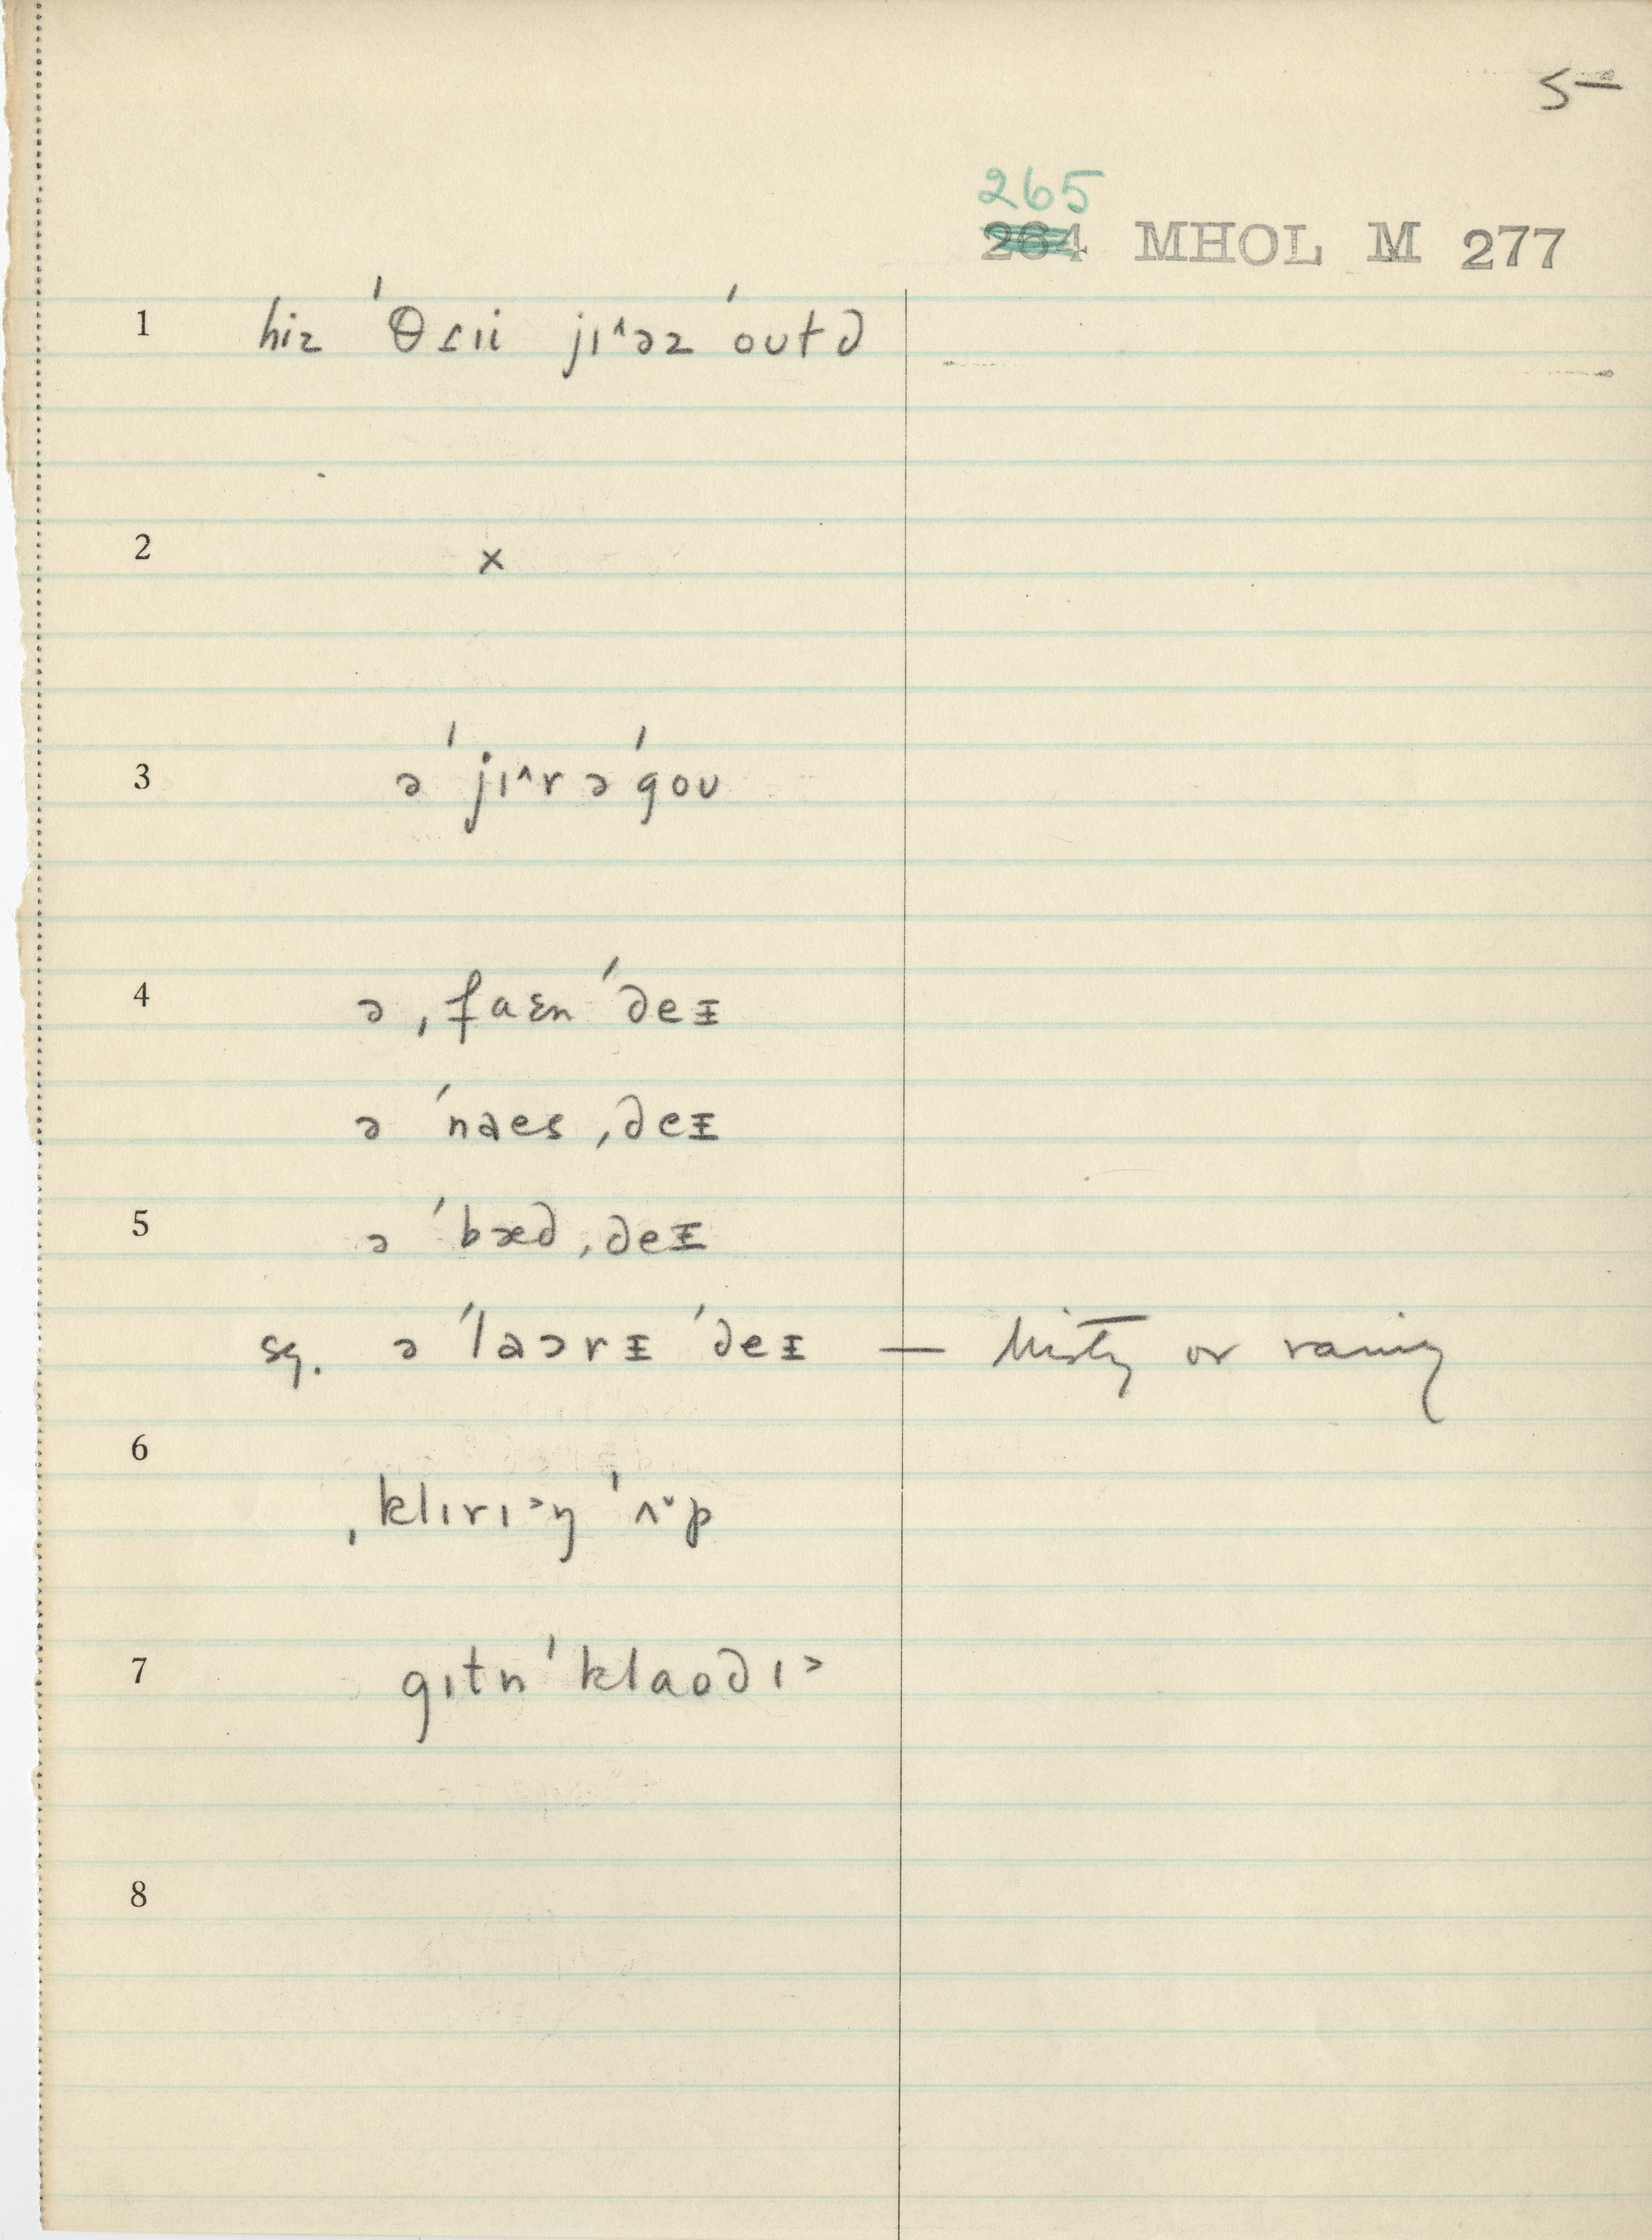 5
265
264 MHOL M 277
1 hiz ˈθɾɪi jɪ˄əz ˈoutd
2 x
3 ə ˈjɪ˄r əˈgoʊ
4 ə ˌfaɛn ˈdeᵻ
ə ˈnaes ˌdeᵻ
5 ə ˈbæd ˌdeᵻ
sq. ə ˈlaərᵻ ˈdeᵻ — misty or rainy
6
ˌklɪrɪ˃ŋ ˈʌ˅p
7 gɪtn ˈklaodɪ˃
8